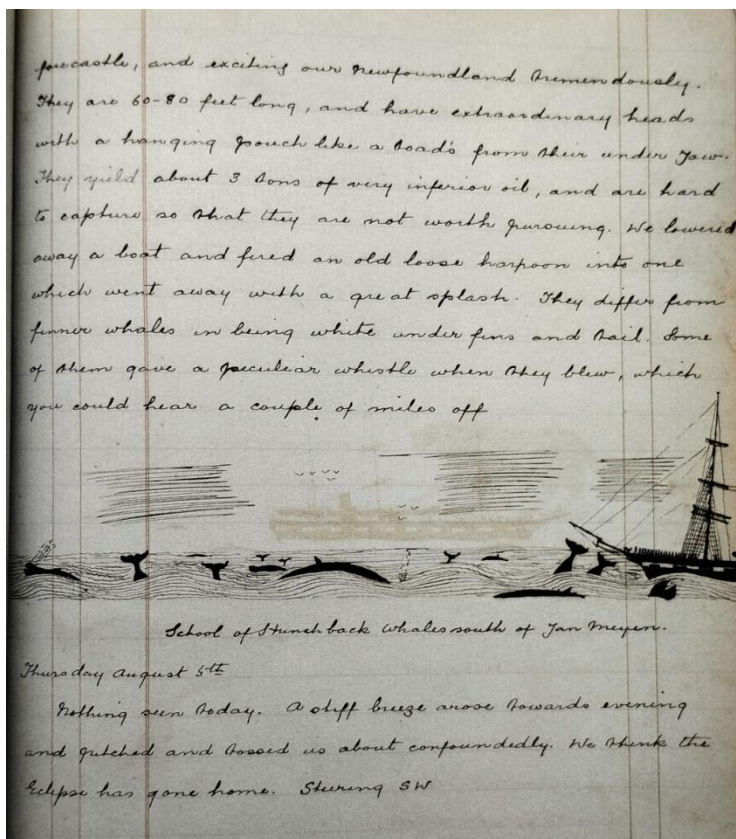 forecastle, and exciting our Newfoundland tremendously.
They are 60-80 feet long, and have extraordinary heads
with a hanging pouch like a toad's from their under jaw.
They yield about 3 tons of very inferior oil, and are hard
to capture so that they are not worth pursuing. We lowered
away a boat and fired an old loose harpoon into one
which went away with a great splash. They differ from
finner whales in being white under fins and tail. Some
of them gave a peculiar whistle when they blew, which
you could hear a couple of miles off
School of Hunchback Whales south of Jan Meyen.
Thursday August 5th
Nothing seen today. A stiff breeze arose towards evening
and pitched and tossed us about confoundedly. We think the
Eclipse has gone home. Steering SW